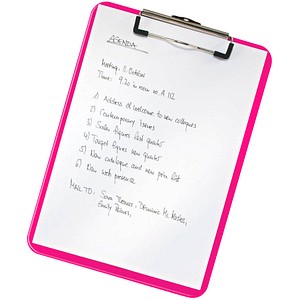 AGENDA
Meeting: 8 October
Time: 9.30 in room no. A 112
1) Address of welcome to new collegues
2) Contemporary Issues
3) Sales figures last quarter
4) Target figures new quarter
5) New catalogue and new price list
6) New web presence
MAIL TO: Sara Thomas, Dominic
Emily